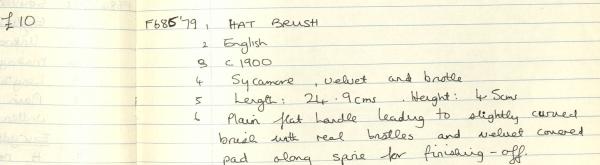 £10 F685'79 1 HAT BRUSH
2 English
3 c 1900
4 Sycamore, velvet and bristle
5 Length: 24.9cms. Height: 4.5cms
6 Plain flat handle leading to slightly curved
brush with real bristles and velvet covered
pad along spine for finishing-off